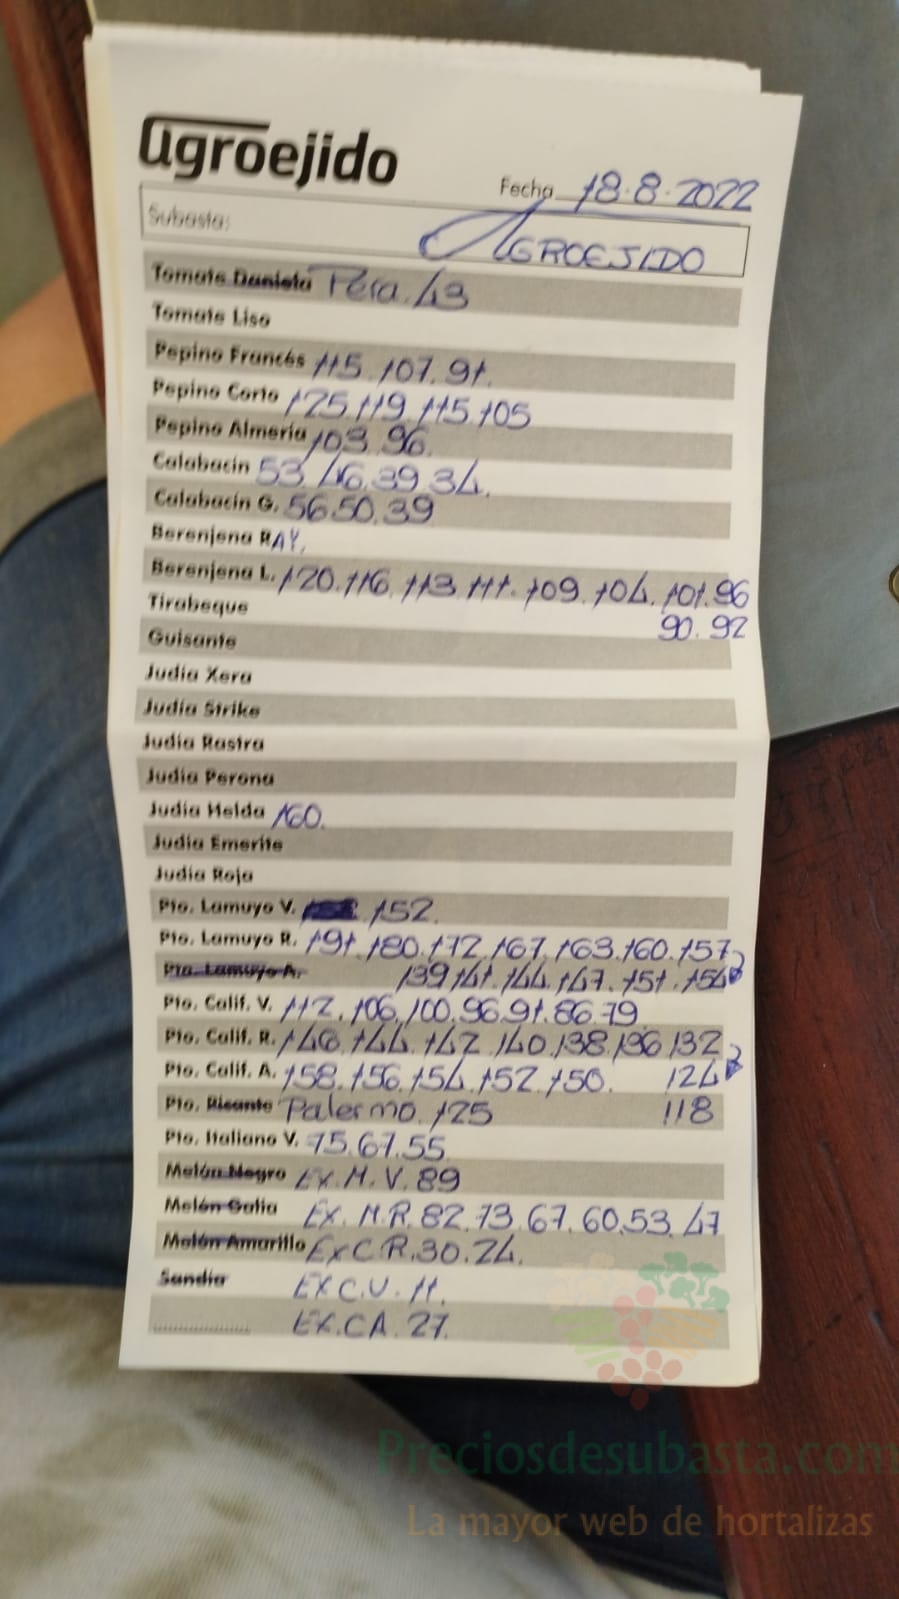 agroejido
Fecha 18.8.2022
Subasta: AGROEJIDO
Tomate Daniela Pera. 43
Tomate Liso
Pepino Francés 115. 107. 91.
Pepino Corto 125. 119. 115. 105
Pepino Almeria 103. 96.
Calabacín 53. 46. 39. 34.
Calabacín G. 56 50. 39
Berenjena RAY.
Berenjena L. 120. 116. 113. 111. 109. 104. 101. 96
Tirabeque 90. 92
Guisante
Judía Xera
Judía Strike
Judía Rastra
Judía Perona
Judía Helda 160.
Judía Emerite
Judía Roja
Pto. Lamuyo V. 152.
Pto. Lamuyo R. 191. 180. 172. 167. 163. 160. 157
Pto. Lamuyo A. 139 141. 144. 147. 151. 154
Pto. Calif. V. 112. 106. 100. 96. 91. 86. 79
Pto. Calif. R. 146. 144. 142. 140. 138. 136 132
Pto. Calif. A. 158. 156. 154. 152. 150. 124
Pto. Picante Palermo. 125 118
Pto. Italiano V. 75. 67. 55.
Melón Negro Ex. M. V. 89
Melón Galia Ex. M. R. 82. 73. 67. 60. 53. 47
Melón Amarillo Ex C. R. 30. 24.
Sandia EX C. V. 11.
EX. CA. 27.
Preciosdesubasta.com
La mayor web de hortalizas